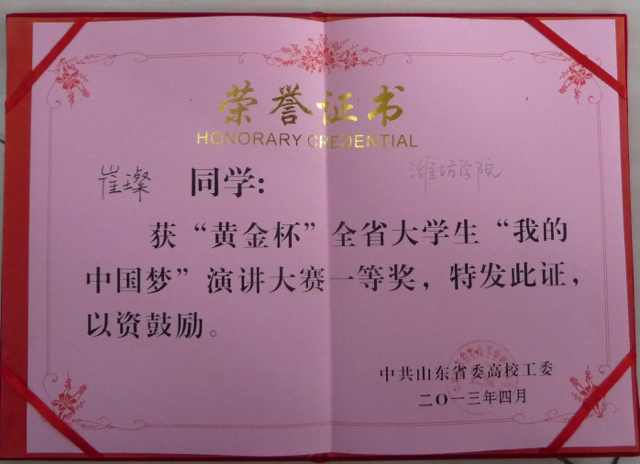 荣誉证书
HONORARY CREDENTIAL
崔璨 同学: 潍坊学院
获“黄金杯”全省大学生“我的
中国梦”演讲大赛一等奖，特发此证，
以资鼓励。
中共山东省委高校工委
二〇一三年四月